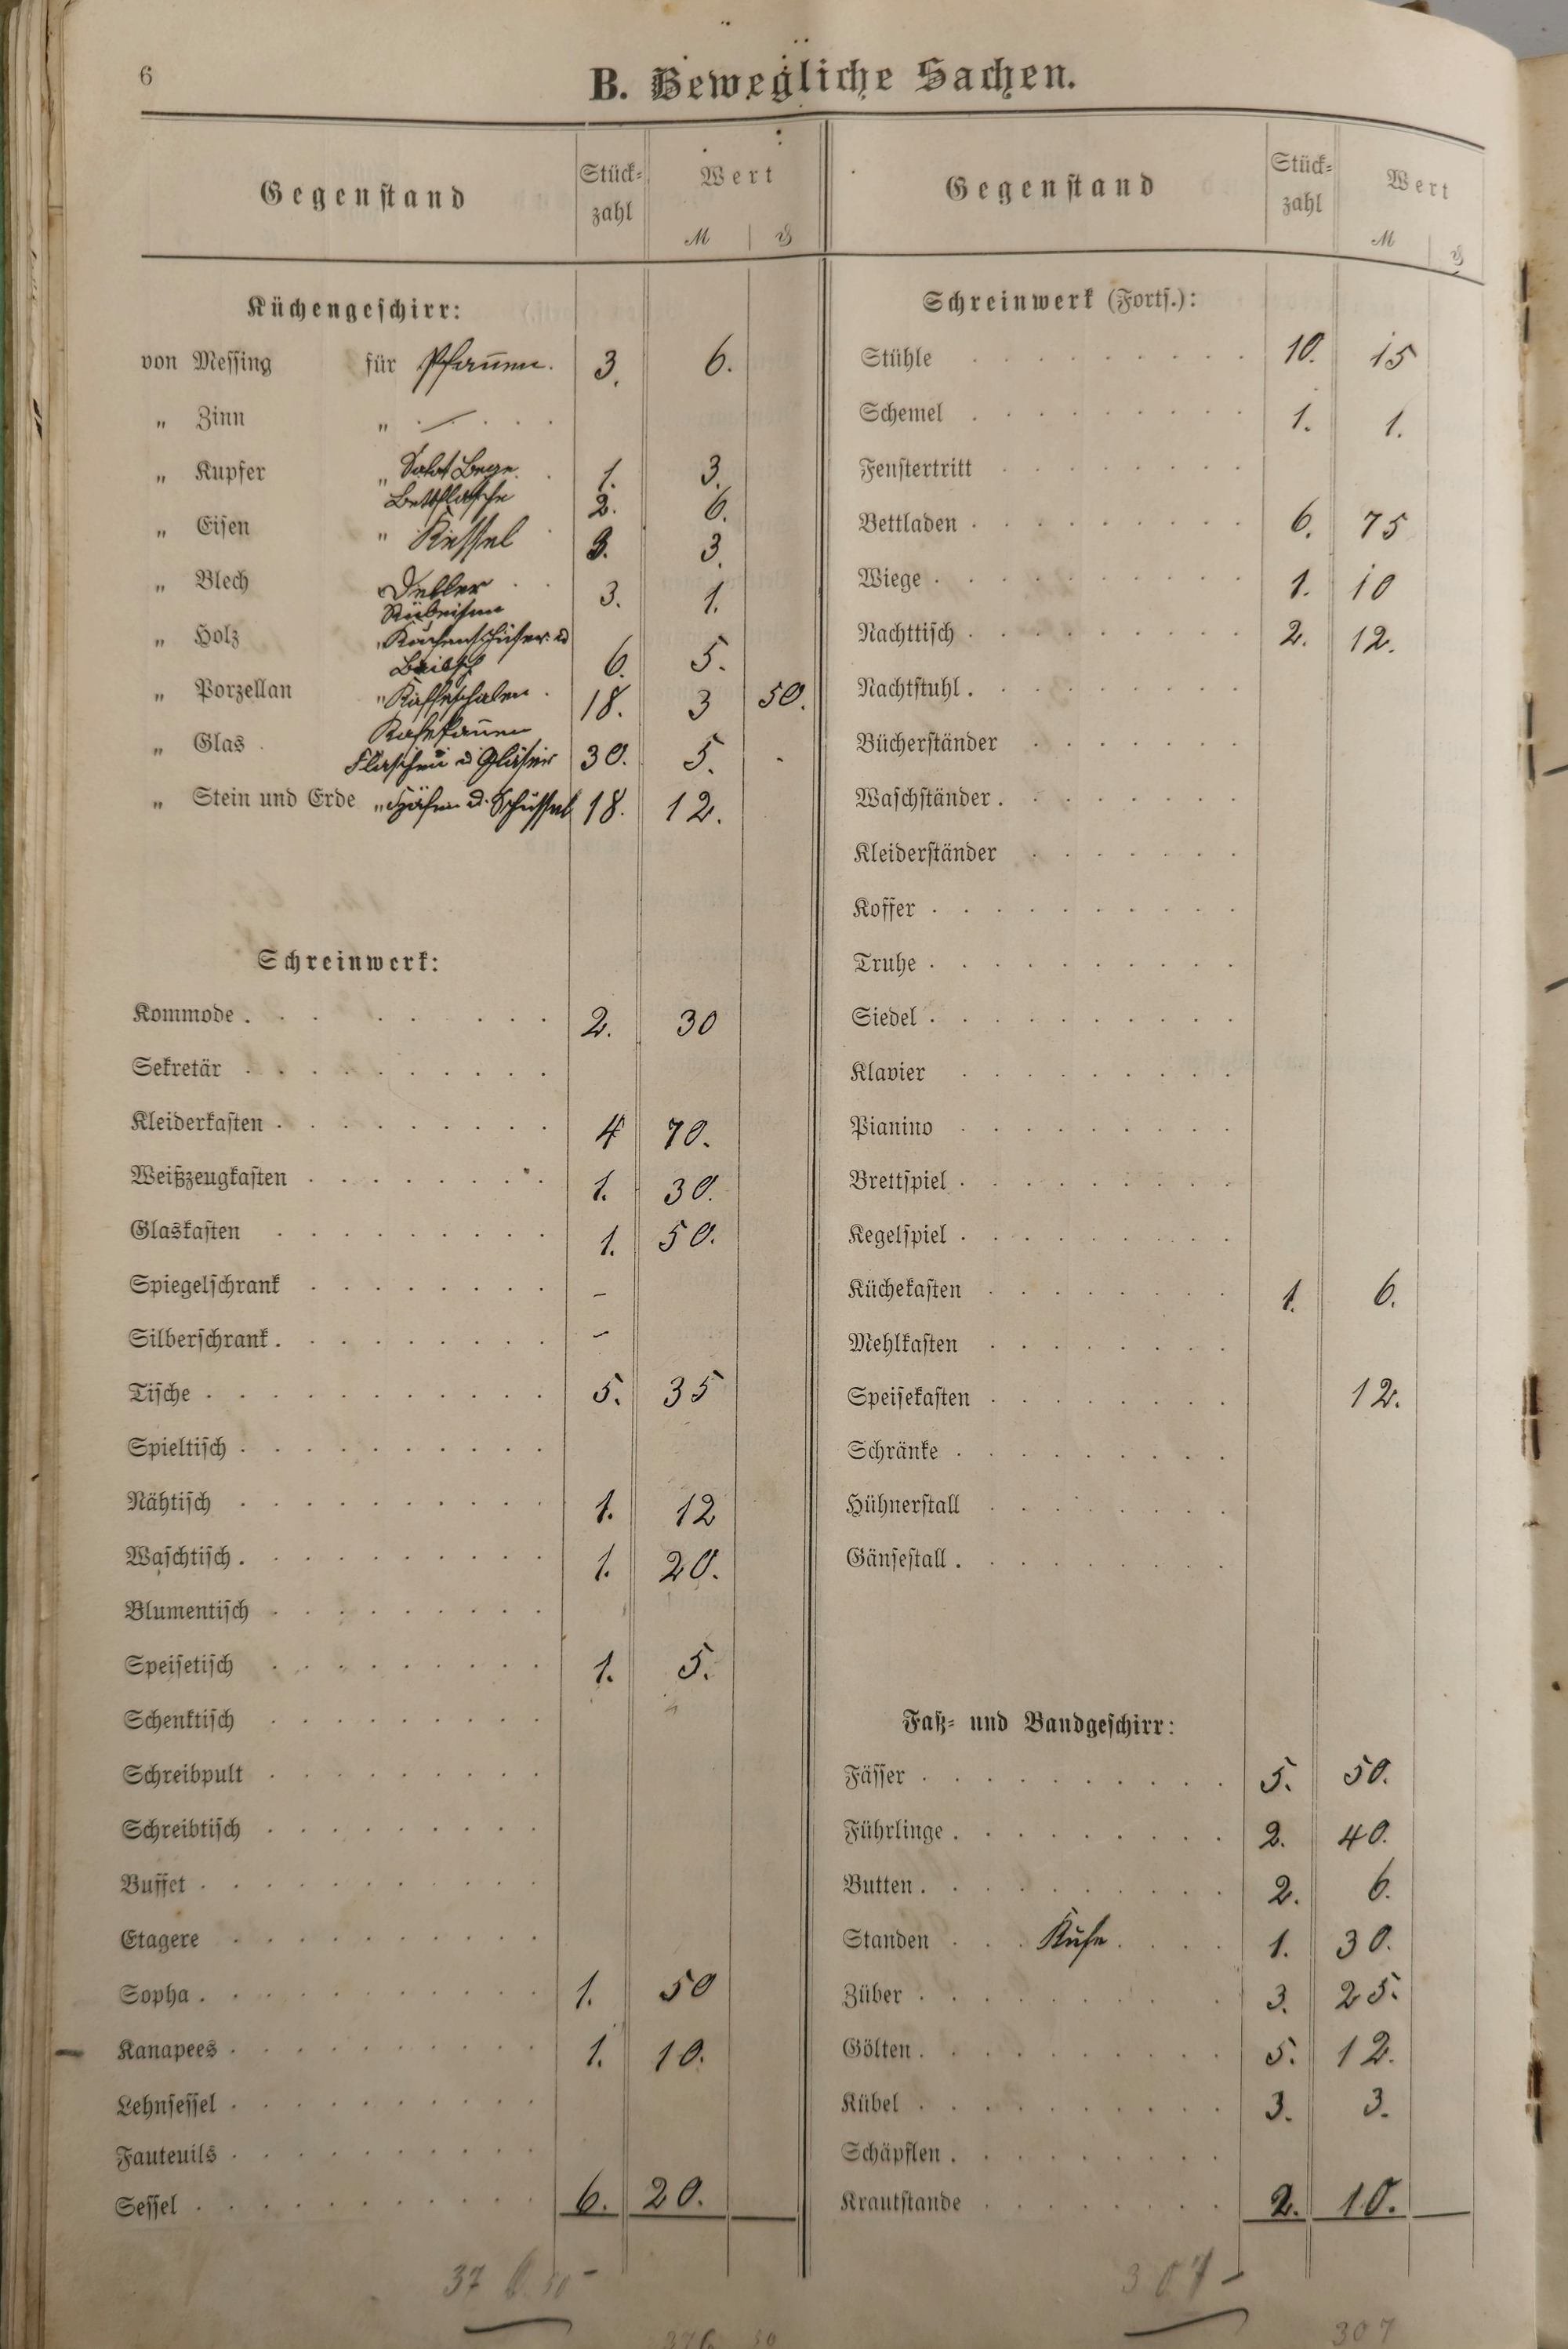 6
B. Bewegliche Sachen.
Gegenstand Stück- zahl Wert M ₰
Küchengeschirr:
von Messing für Pfannen. 3. 6.
„ Zinn „ —
„ Kupfer „ 1. 3.
Bettflasche 2. 6.
„ Eisen „ Kessel 3. 3.
„ Blech Deller 3. 1.
„ Holz „
6. 5.
„ Porzellan „ Kaffeschalen 18. 3 50.
„ Glas
Flaschen u Gläser 30. 5. -
„ Stein und Erde „ Häfen u. Schüssel 18. 12.
Schreinwerk:
Kommode 2. 30
Sekretär
Kleiderkasten 4 70.
Weißzeugkasten 1. 30.
Glaskasten 1. 50.
Spiegelschrank –
Silberschrank –
Tische 5. 35
Spieltisch
Nähtisch 1. 12
Waschtisch 1. 20.
Blumentisch
Speisetisch 1. 5.
Schenktisch
Schreibpult
Schreibtisch
Buffet
Etagere
Sopha 1. 50
Kanapees 1. 10.
Lehnsessel
Fauteuils
Sessel 6. 20.
376.50 –
376 50
Gegenstand Stück- zahl Wert M ₰
Schreinwerk (Forts.):
Stühle 10. 15
Schemel 1. 1.
Fenstertritt
Bettladen 6. 75
Wiege 1. 10
Nachttisch 2. 12.
Nachtstuhl
Bücherständer
Waschständer
Kleiderständer
Koffer
Truhe
Siedel
Klavier
Pianino
Brettspiel
Kegelspiel
Küchekasten 1. 6.
Mehlkasten
Speisekasten 12.
Schränke
Hühnerstall
Gänsestall
Faß- und Bandgeschirr:
Fässer 5. 50.
Führlinge 2. 40.
Butten 2. 6.
Standen Kufe 1. 30.
Züber 3. 25.
Gölten 5. 12.
Kübel 3. 3.
Schäpflen
Krautstande 2. 10.
307 –
307